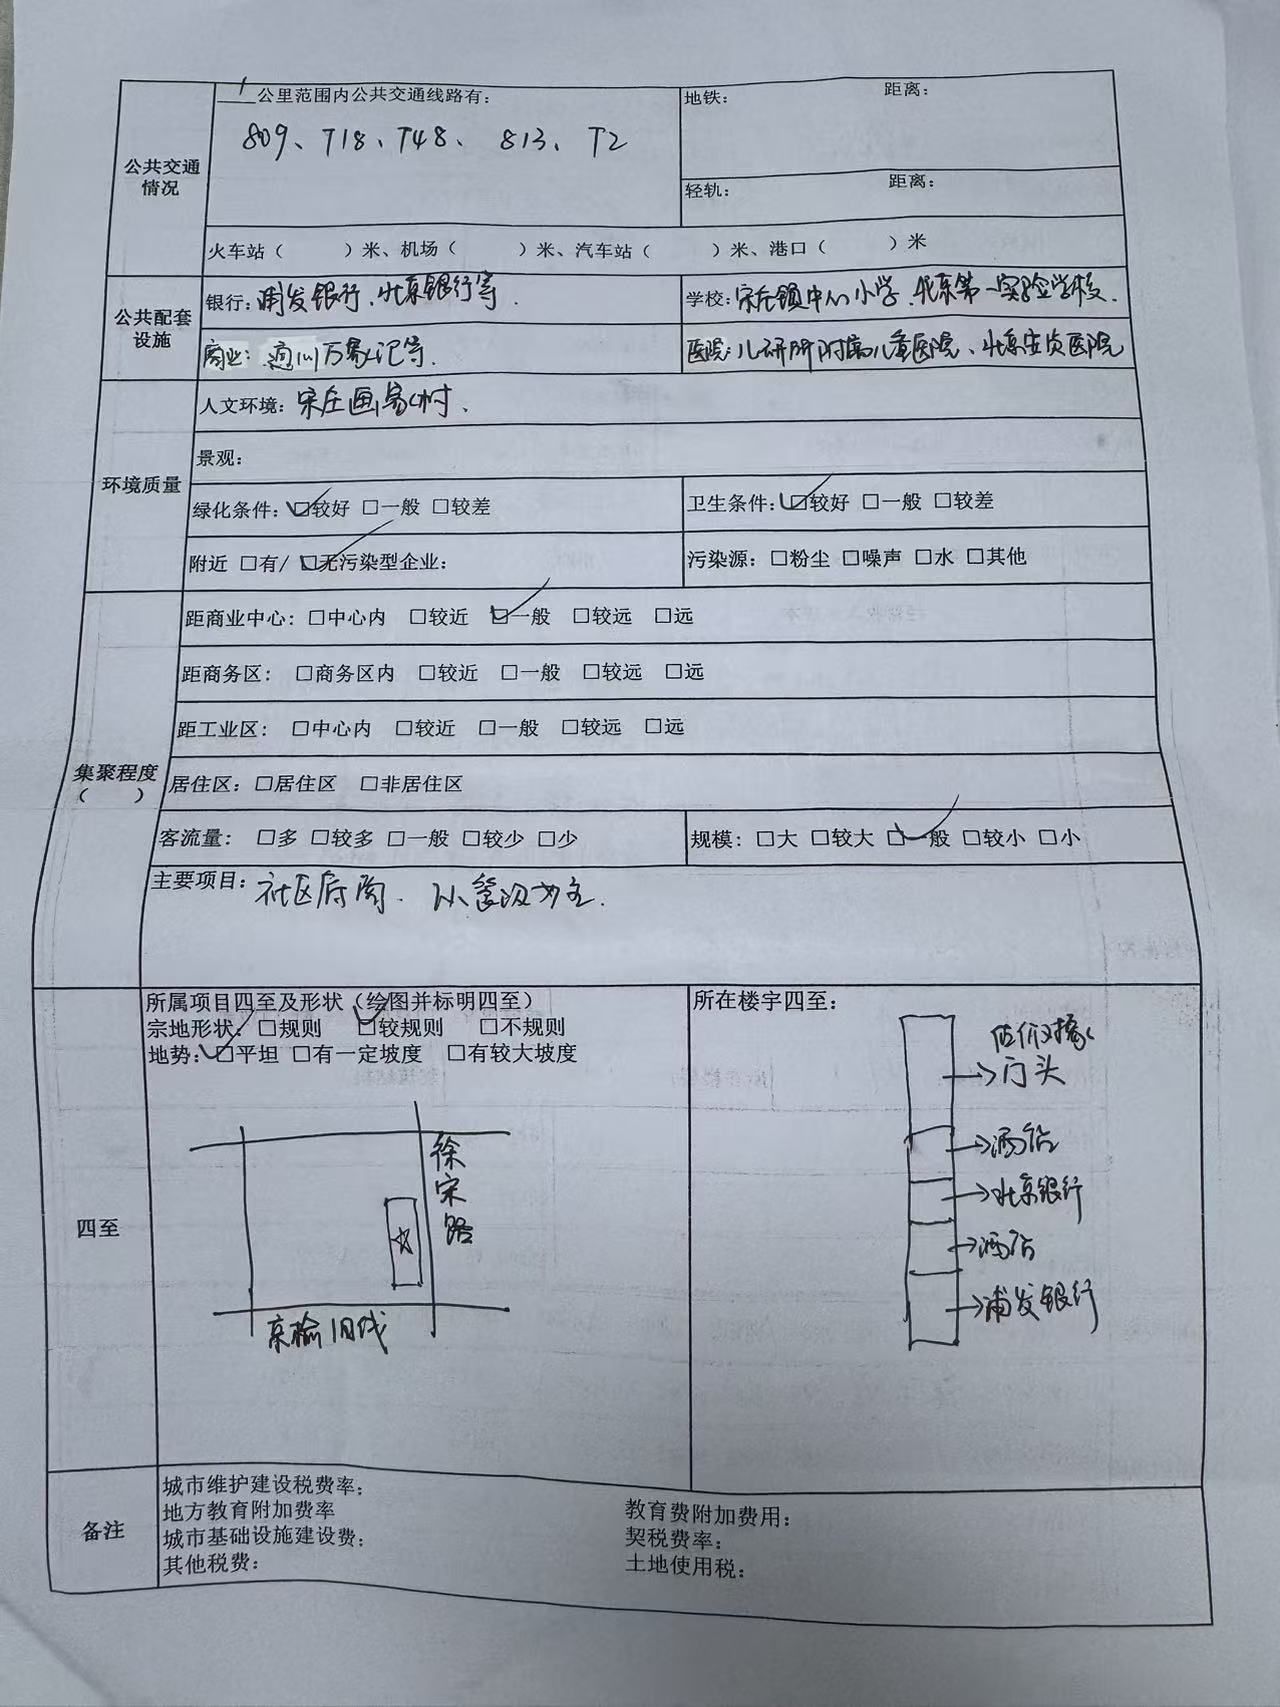 1 公里范围内公共交通线路有：
809、T18、T48、 813、T2
地铁： 距离：
轻轨： 距离：
公共交通
情况
火车站（ ）米、机场（ ）米、汽车站（ ）米、港口（ ）米
公共配套
设施
银行：浦发银行、北京银行等.
学校：宋庄镇中心小学、北京第一实验学校.
商业：通州万象汇等.
医院：儿研所附属儿童医院、北京安贞医院
环境质量
人文环境：宋庄画家村、
景观：
绿化条件：☑较好 □一般 □较差
卫生条件：☑较好 □一般 □较差
附近 □有/ ☑无污染型企业：
污染源：□粉尘 □噪声 □水 □其他
集聚程度
（ ）
距商业中心：□中心内 □较近 ☑一般 □较远 □远
距商务区： □商务区内 □较近 □一般 □较远 □远
距工业区： □中心内 □较近 □一般 □较远 □远
居住区：□居住区 □非居住区
客流量： □多 □较多 □一般 □较少 □少
规模：□大 □较大 ☑一般 □较小 □小
主要项目：社区底商. 以餐饮为主.
四至
所属项目四至及形状（绘图并标明四至）
宗地形状：□规则 ☑较规则 □不规则
地势：☑平坦 □有一定坡度 □有较大坡度
徐宋路
京榆旧线
所在楼宇四至：
估价对象
门头
酒店
北京银行
酒店
浦发银行
备注
城市维护建设税费率：
地方教育附加费率
城市基础设施建设费：
其他税费：
教育费附加费用：
契税费率：
土地使用税：